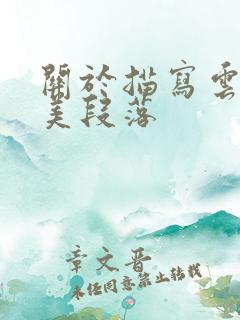 關於描寫雲
美段落
章文晋
未经同意禁止转载